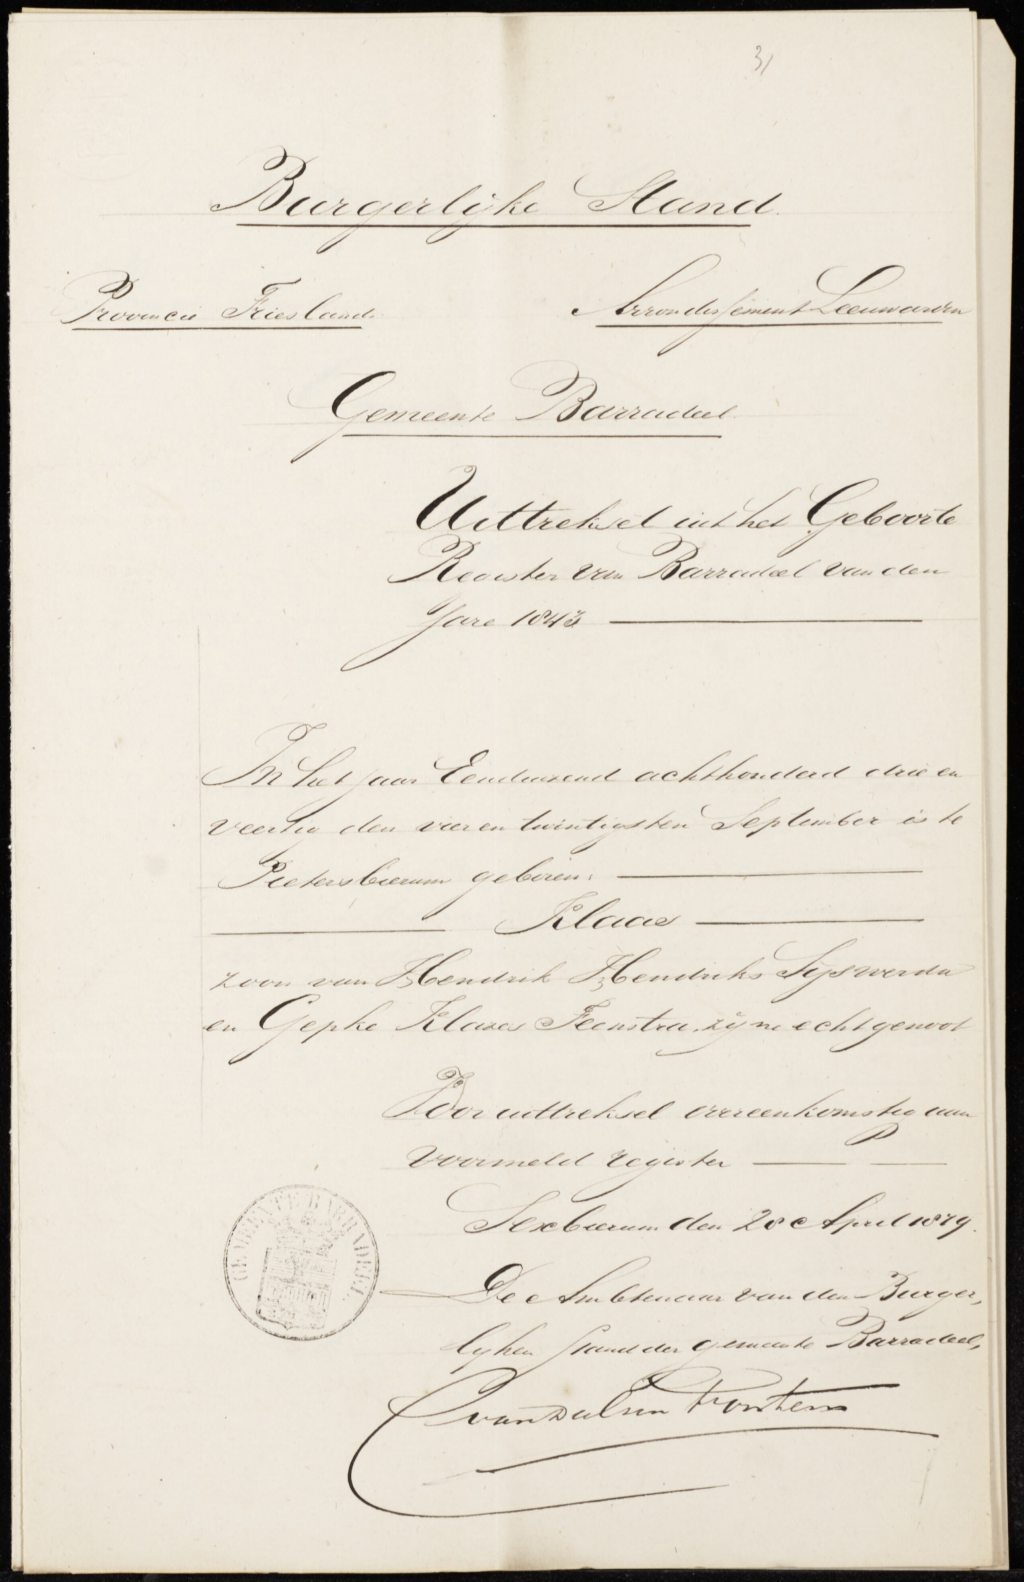 31
Burgerlijke Stand.
Provincie Friesland.
Arrondissement Leeuwarden
Gemeente Barradeel.
Uittreksel uit het Geboorte
Register van Barradeel van den
Jare 1843
In het jaar Eenduizend achthonderd drie en
veertig den vier en twintigsten September is te
Pietersbierum geboren:
Klaas
zoon van Hendrik Hendriks Sijswerda
en Gepke Klazes Feenstra, zijne echtgenoot
Voor uittreksel overeenkomstig aan
voormeld register
Sexbierum den 28 April 1879.
GEMEENTE BARRADEEL.
De Ambtenaar van den Burger,
lijken stand der gemeente Barradeel,